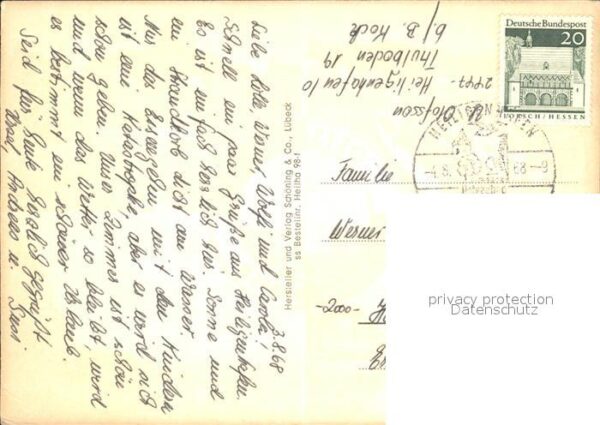 3.8.68
Liebe Lotte, Werner, Wolfi und Carola!
Schnell ein paar Grüße aus Heiligenhafen.
Es ist einfach herrlich hier. Sonne und
ein Strandkorb dicht am Wasser.
Nur das Essengehen mit den Kindern
ist eine Katastrophe, aber es wird sich
schon geben. Unser Zimmer ist schön
und wenn das Wetter so bleibt, wird
es bestimmt ein schöner Urlaub.
Seid für heute herzlich gegrüßt
u. Sven.
Hersteller und Verlag Schöning & Co., Lübeck
ss Bestellnr. Heilha 98-1
Olofsson
2447-Heiligenhafen/O
Thulboden 19
b./B. Kock
Deutsche Bundespost
20
LORSCH/HESSEN
HEILIGENHAFEN
-4.8.68-9
Familie
Werner
-2000-
privacy protection
Datenschutz